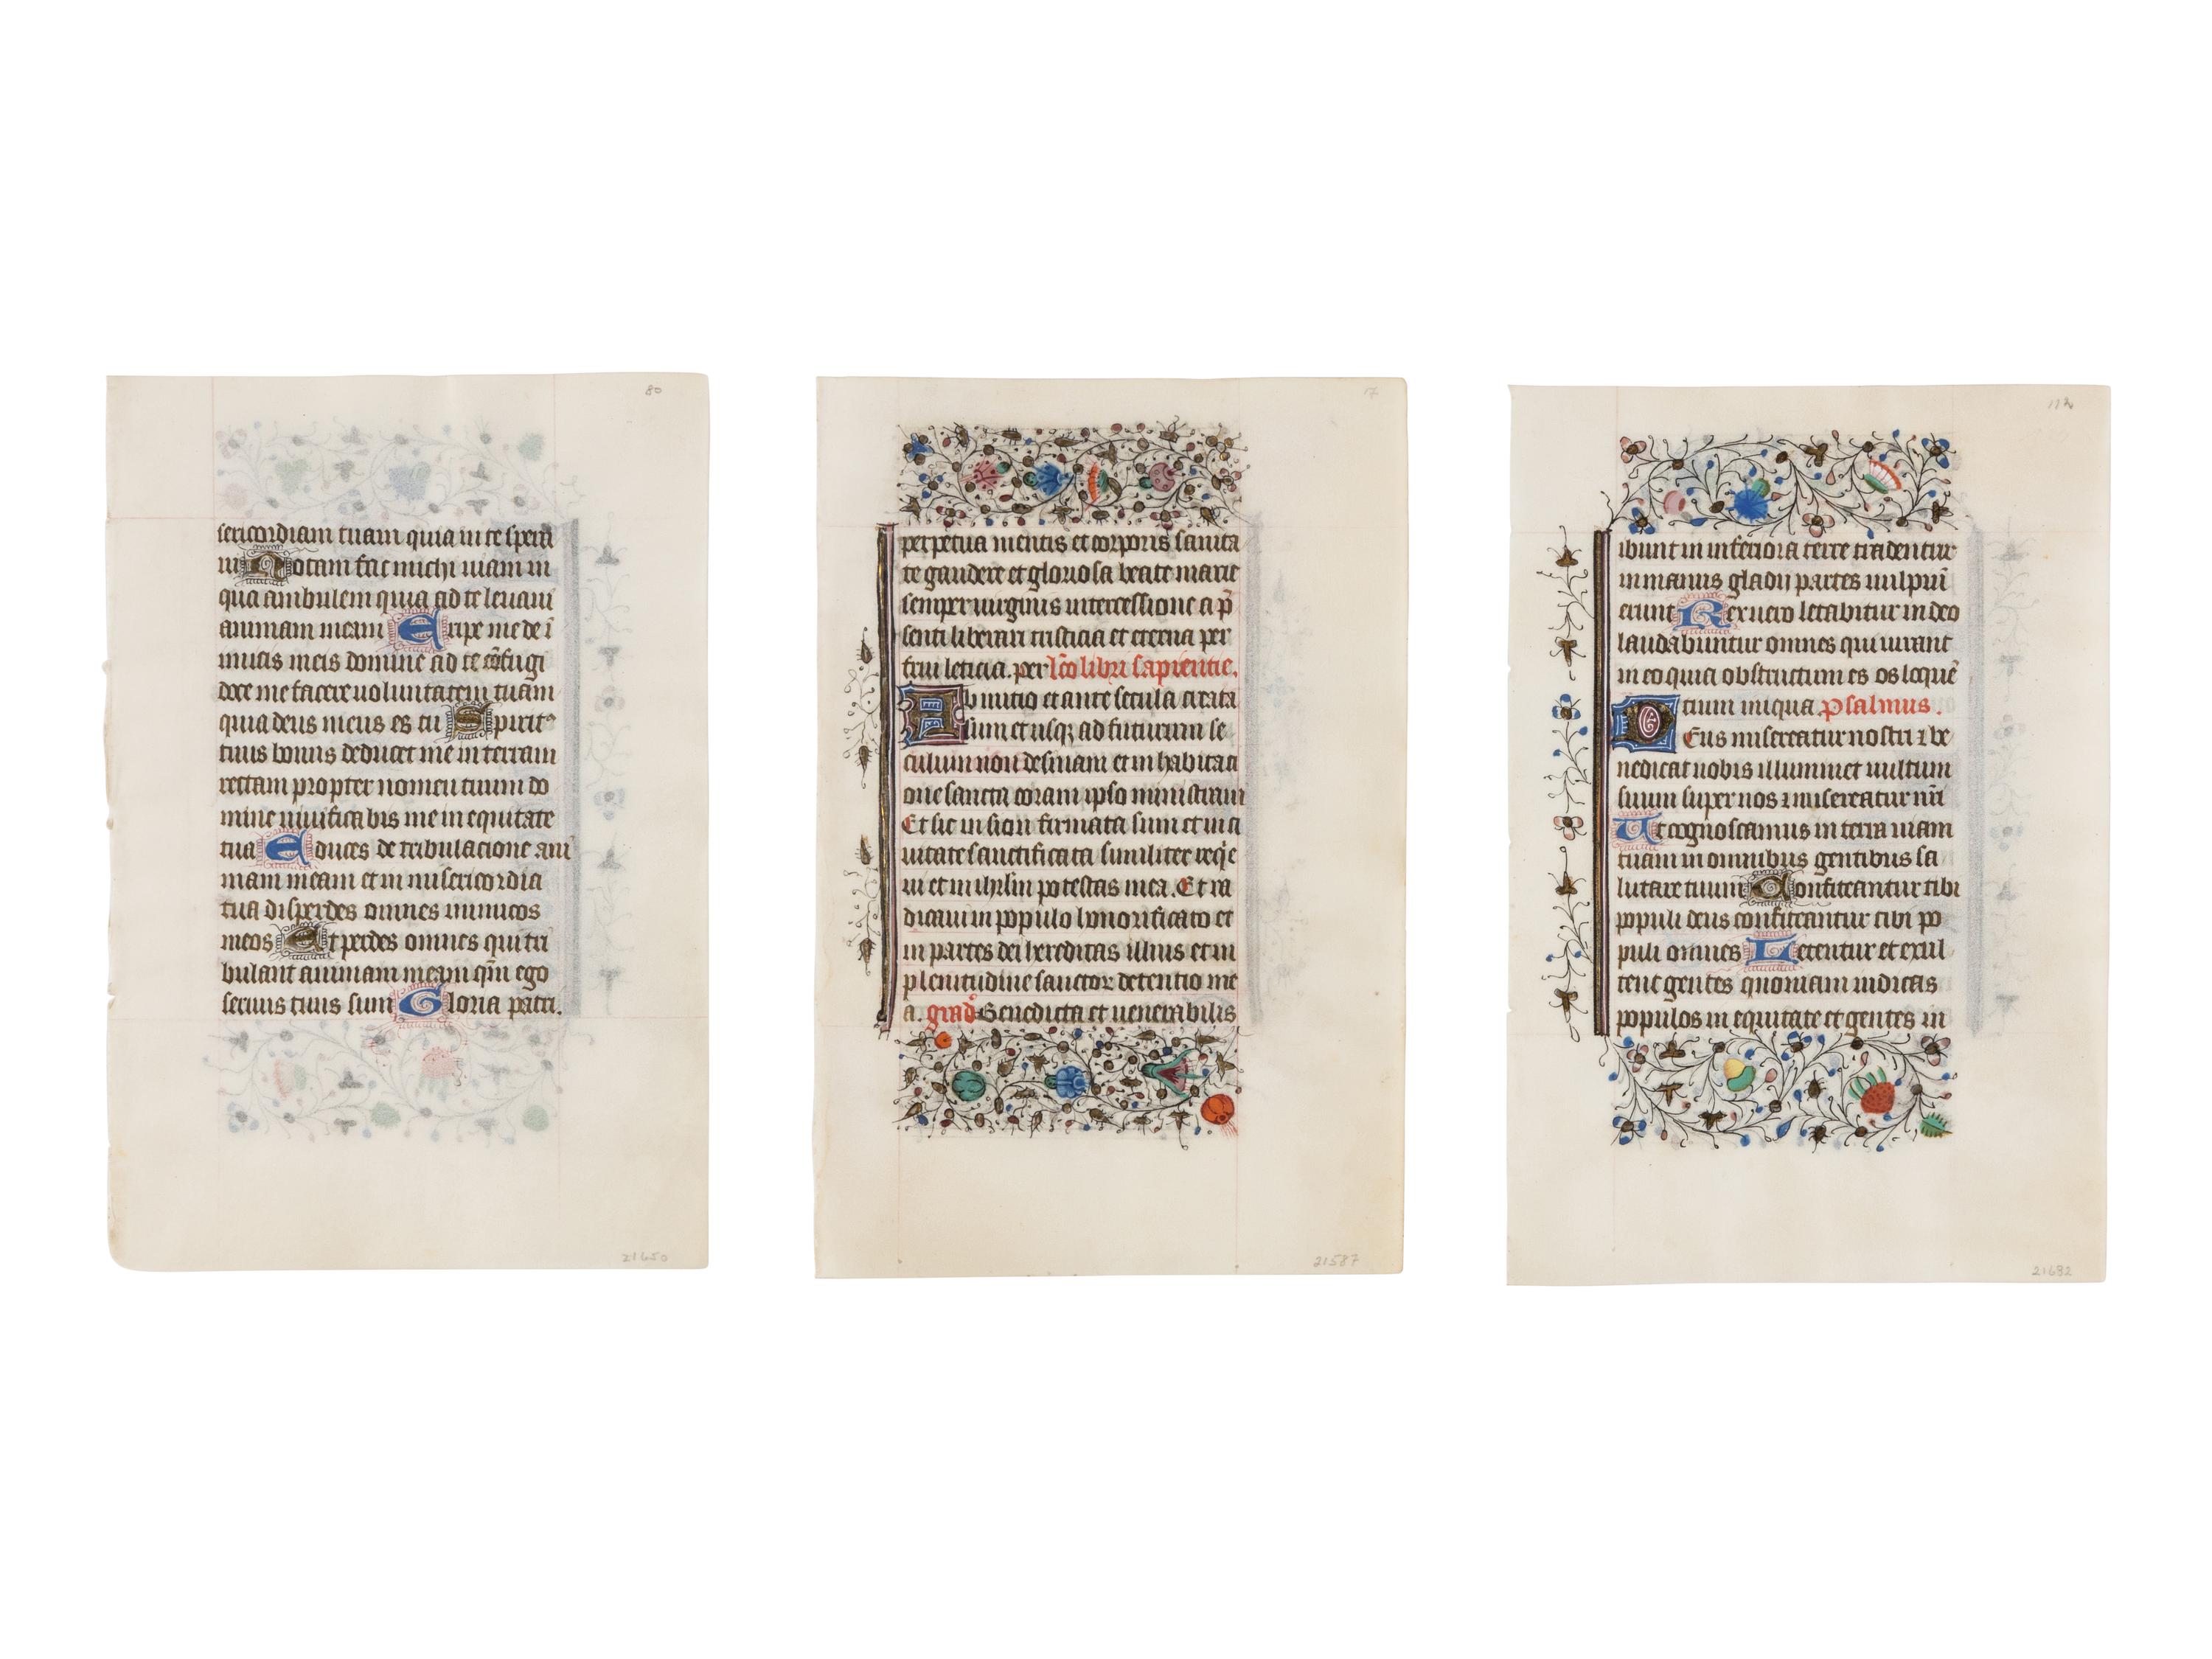 80
sericordiam tuam quia in te spera
ui Notam fac michi uiam in
qua ambulem quia ad te leuaui
animam meam Eripe me de i
micis meis domine ad te cōfugi
doce me facere uoluntatem tuam
quia deus meus es tu Spirit⁹
tuus bonus deducet me in terram
rectam propter nomen tuum do
mine uiuificabis me in equitate
tua Educes de tribulacione ani
mam meam et in misericordia
tua disperdes omnes inimicos
meos Et perdes omnes qui tri
bulant animam meam qm̄ ego
seruus tuus sum Gloria patri.
21650
17
perpetua mentis et corporis sanita
te gaudere et gloriosa beate marie
semper uirginis intercessione a p̄
senti liberari tristicia et eterna per
frui leticia. per lc̄o libri sapientie.
Ab inicio et ante secula creata
sum et usqꝫ ad futurum se
culum non desinam et in habitaci
one sancta coram ipso ministraui
Et sic in sion firmata sum et in ci
uitate sanctificata similiter req̄e
ui et in ihrl̄m potestas mea. Et ra
dicaui in populo honorificato et
in partes dei hereditas illius et in
plenitudine sanctoꝝ detentio me
a. grad⁹ Benedicta et uenerabilis
21587
112
ibunt in inferiora terre tradentur
in manus gladii partes uulpiū
erunt Rex uero letabitur in deo
laudabuntur omnes qui iurant
in eo quia obstructum es os loquē
tium iniqua. Psalmus.
Deus misereatur nostri ⁊ be
nedicat nobis illuminet uultum
suum super nos ⁊ misereatur nr̄i
Ut cognoscamus in terra uiam
tuam in omnibus gentibus sa
lutare tuum Confiteantur tibi
populi deus confiteantur tibi po
puli omnes Letentur et exul
tent gentes quoniam iudicas
populos in equitate et gentes in
21682